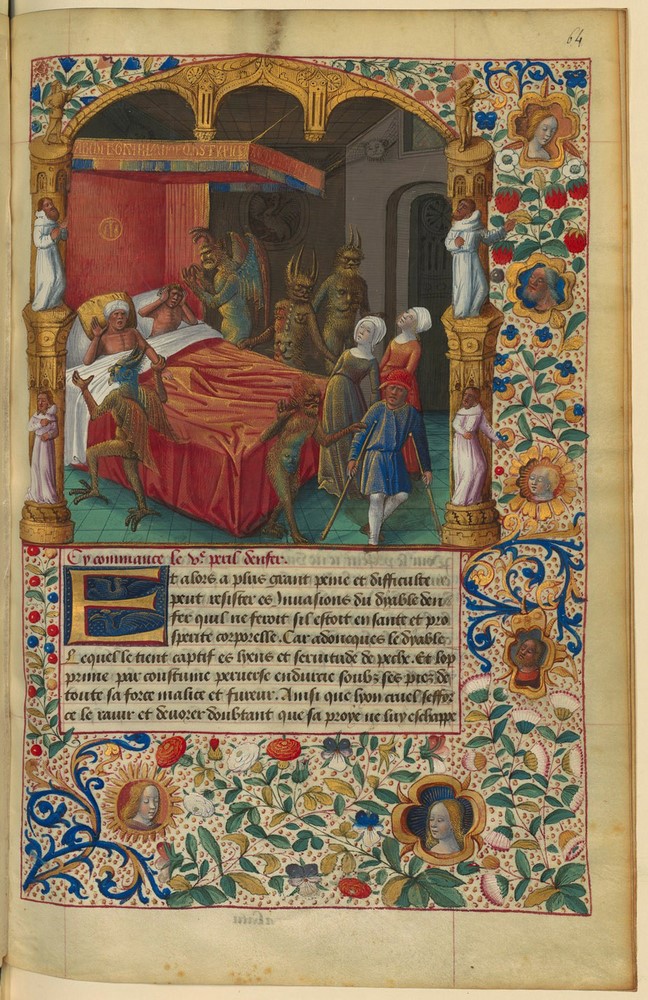 64
Cy commance le Ve peril denfer.
Et alors a plus grant peine et difficulte
peut resister es Inuasions du dyable den
fer quil ne feroit sil estoit en sante et pro
sperite corporelle. Car adoncques le dyable
Lequel le tient captif es lyens et seruitude de peche. Et lop
prime par coustume peruerse endurcie soubz ses piez de
toute sa force malice et fureur. Ainsi que lyon cruel seffor
ce le rauir et deuorer doubtant que sa proye ne luy eschappe